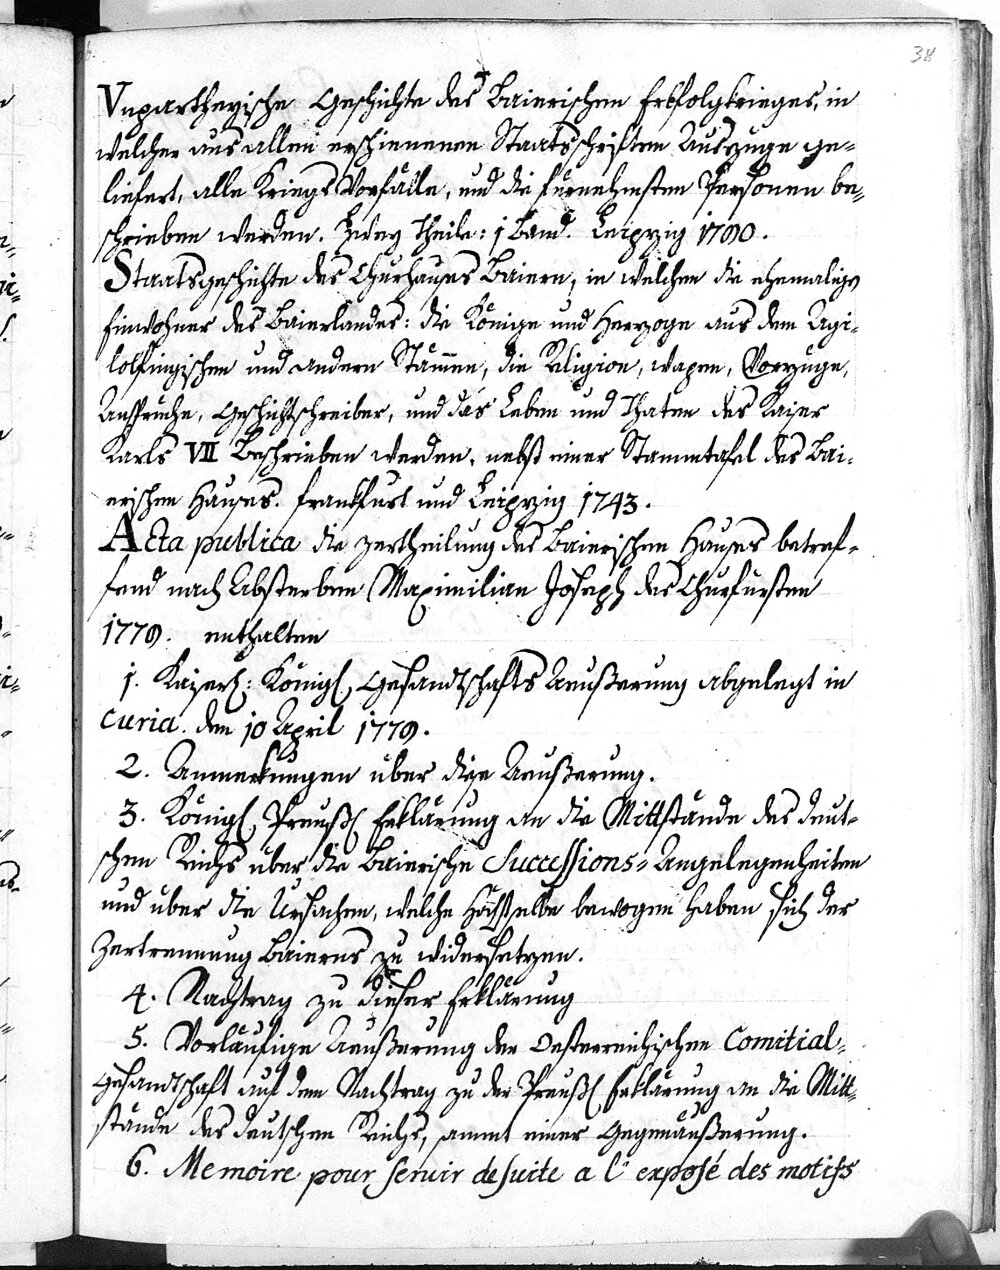 38
Vnpartheyische Geschichte des Baierischen Erbfolgkrieges, in
welcher aus allen erschienenen Staatsschriften Auszuge ge=
liefert, alle Kriegs Vorfälle, und die fürnehmsten Personen be=
schrieben werden. Zwey Theile: 1 Band. Leipzig 1780.
Staatsgeschichte des Churhauses Baiern, in welchen die ehemalige
Einwohner des Baierlandes: die Könige und Herzoge aus dem Agi=
lolfingischen und andern Stämen, die Religion, wapen, Vorzüge,
Ansprüche, Geschichtschreiber, und das Leben und Thaten des Kaiser
Karls VII Beschrieben werden, nebst einer Stammtafel des Bai=
erischen Hauses. Frankfurt und Leipzig 1743.
Acta publica die zertheilung des Baierischen Hauses betref=
fend nach Absterben Maximilian Joseph des Churfürsten
1779. enthalten
1. Kaiserl: Königl Gesandtschafts Aeußerung abgelegt in
Curia. den 10 April 1779.
2. Anmerkungen über diese Aeußerung.
3. Königl Preußl Erklärung an die Mittstände des deut=
schen Reichs über die Baierische Successions=Angelegenheiten
und über die Ursachen, welche Höchstselbe bewogen haben sich der
Zertrennung Baierns zu widersetzen.
4. Nachtrag zu dieser Erklärung
5. Vorläufige Aeußerung der Oesterreichischen Comitial=
Gesandtschaft auf dem Nachtrag zu der Preußl Erklärung an die Mitt=
stände des deutschen Reichs, sammt einer Gegenäußerung.
6. Memoire pour servir de suite a l'exposé des motifs